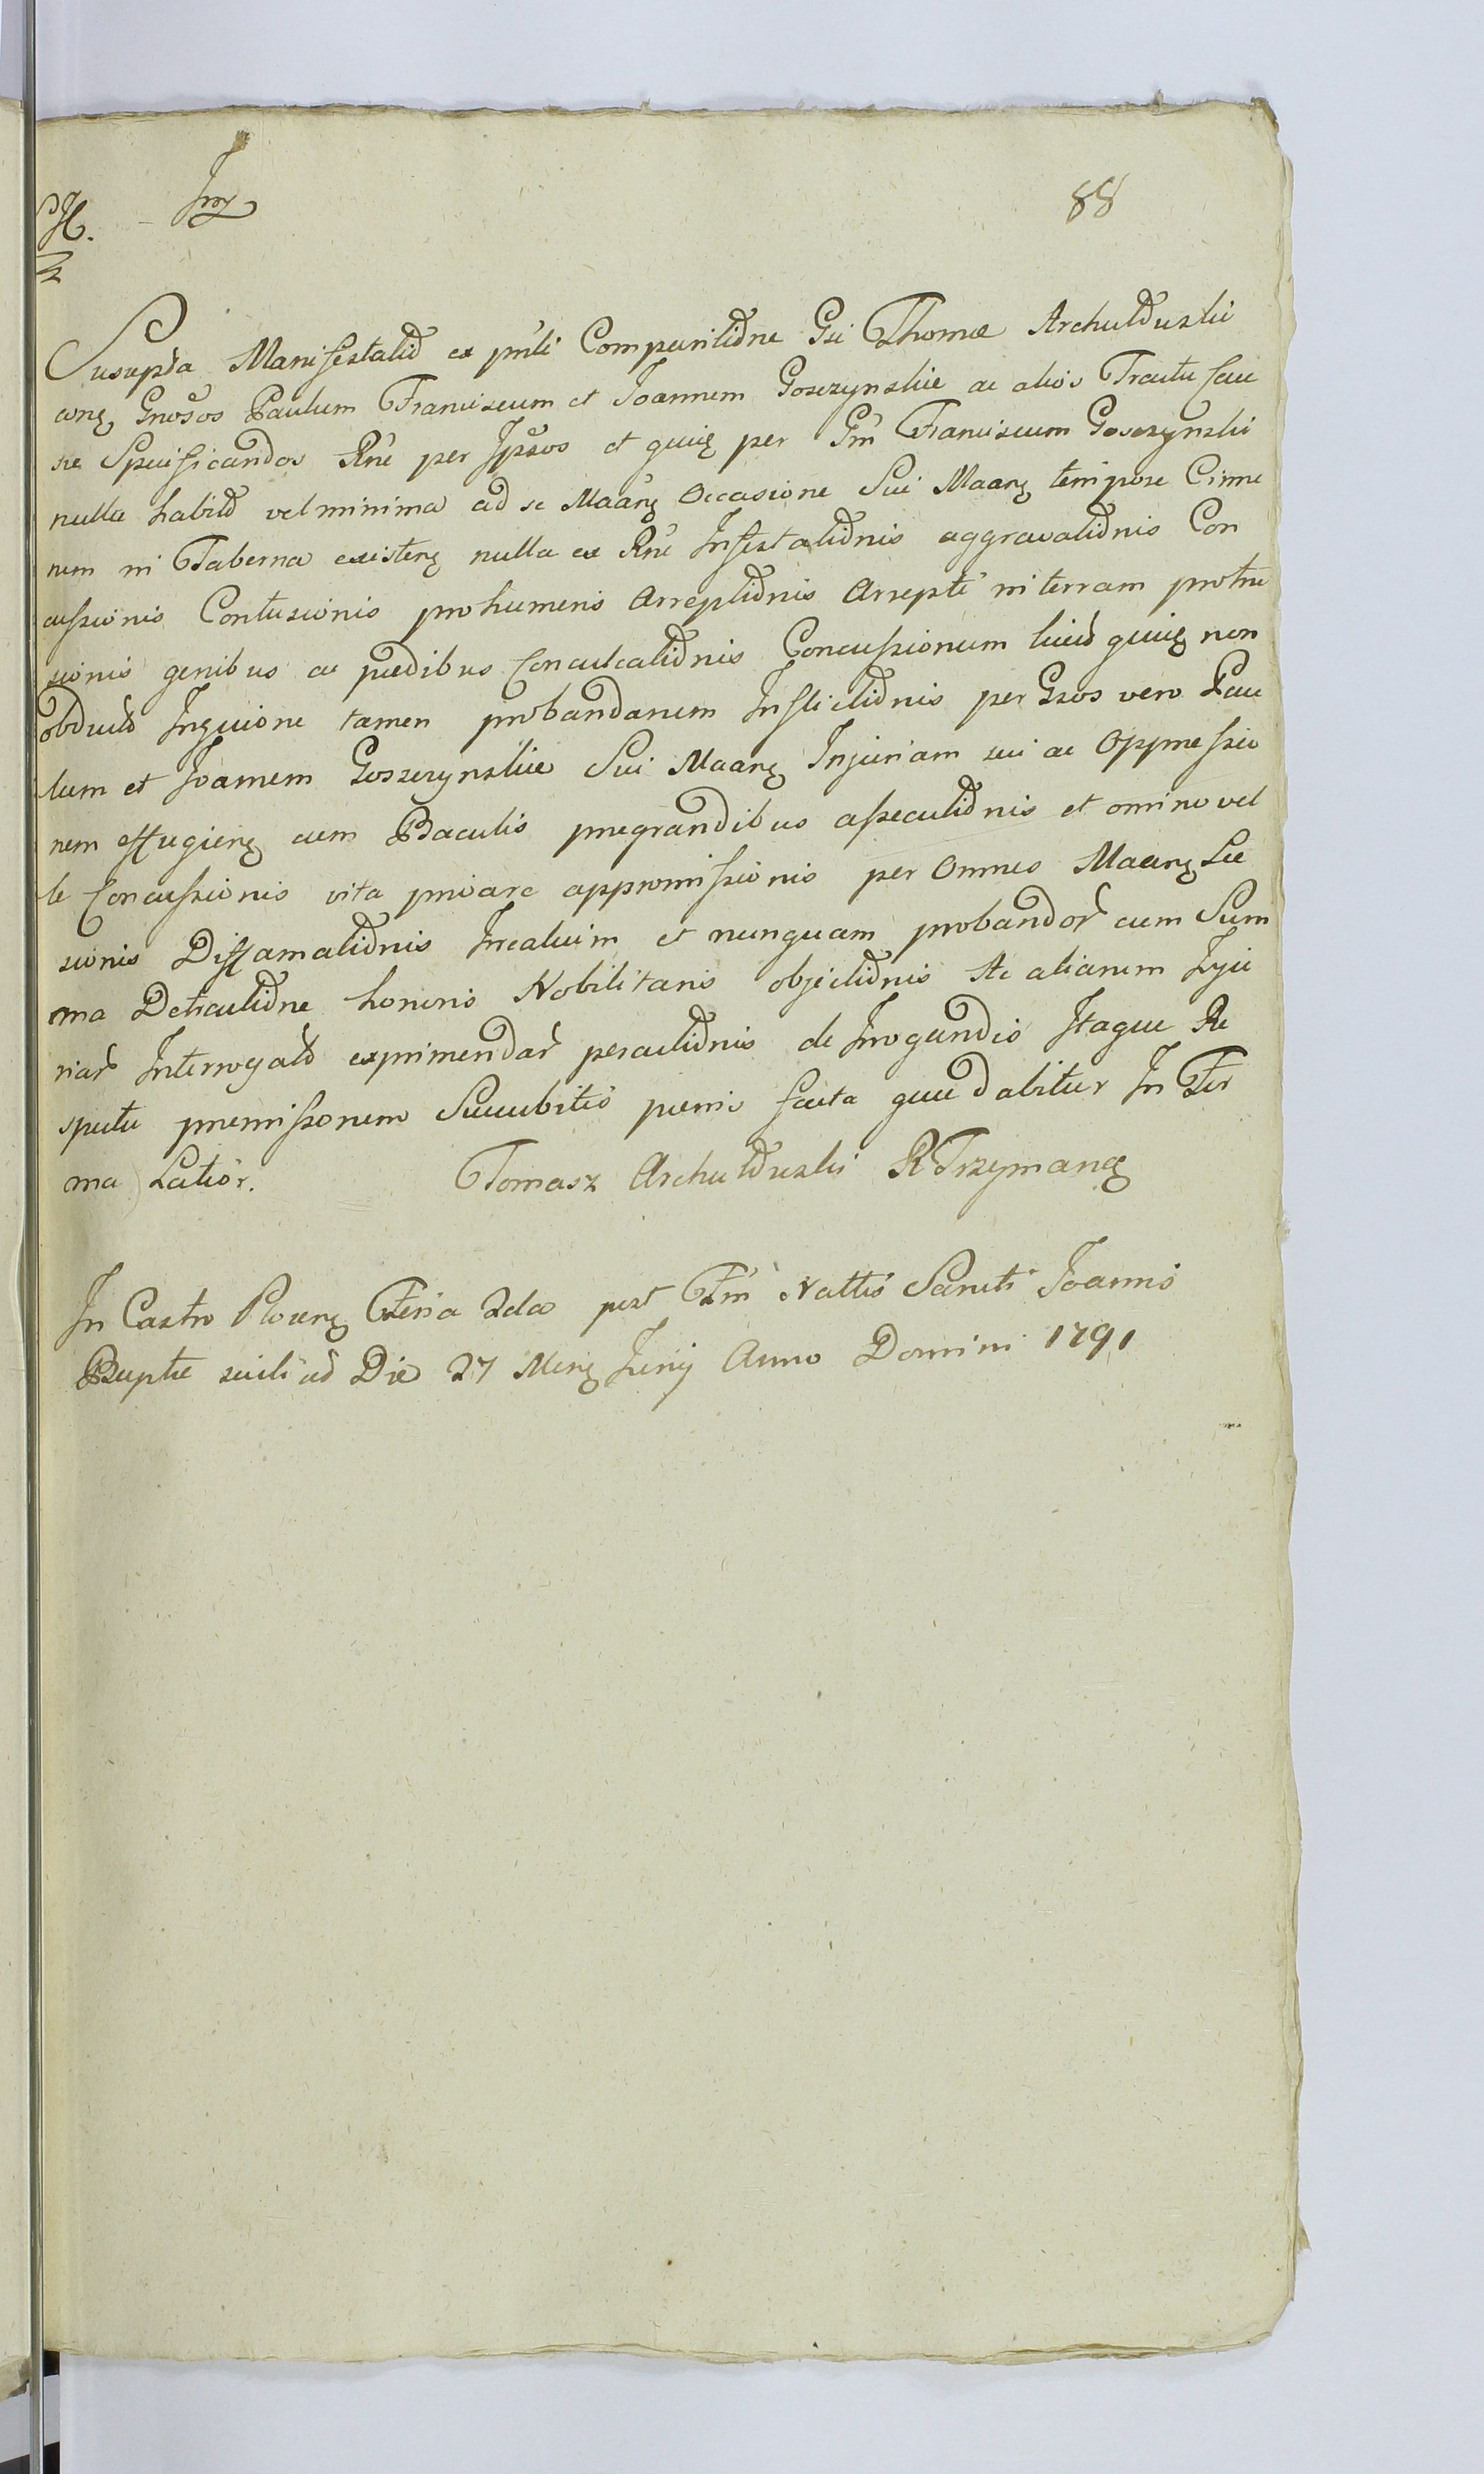 88
Suscepta Manifestatio ex pnli Comparitione Gsi Thomæ Archutowski
conq Gnosos Paulum Franciscum et Joannem Goszczynskie ac alios Tractu cau
sæ Specificandos Rne per Ipsos et quiq per Gm Franciscum Goszczynski
nulla habita vel minima ad se Maarq Occasione Sui Maarq tempore Cinne
num in Taberna existenq nulla ex Rne Infestationis aggravationis Con
cussionis Contusionis pro humeris Arreptionis Arrepti in terram protru
sionis genibus ac pedibus Conculcationis Concussionum livid quiq non
obduct Inquione tamen probandarum Inflictionis per Gsos vero Pau
lum et Joannem Goszczynskie Sui Maarq Injuriam sui ac Oppressio
nem effugienq cum Baculis prægrandibus assecutionis et omino vel
le Concussionis vita privare appromissionis per Omnes Maarq Læ
sionis Diffamationis et nunquam probandor cum Sum
ma Detractione honoris Nobilitaris objectionis Ac aliarum Inju
riar Interrogato exprimendar peractionis de Irrogandis Itaque Re
spectu præmissorum Succubitis pænis facta quæ dabitur In For
ma Latior. Tomasz Archutowski RTrzymanq
In Castro Plocenq Feria 2da post Ftm Nattis Sancti Joannis
Baptæ scili ad Die 27 Menq Junij Anno Domini 1791